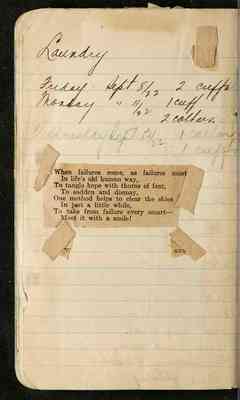 Laundry
Friday Sept 8/22 2 cuffs
Monday " 11/22 1 cuff
2 collars
When failures come, as failures must
In life's old human way,
To tangle hope with thorns of fear,
To sadden and dismay,
One method helps to clear the skies
In just a little while,
To take from failure every smart—
Meet it with a smile!